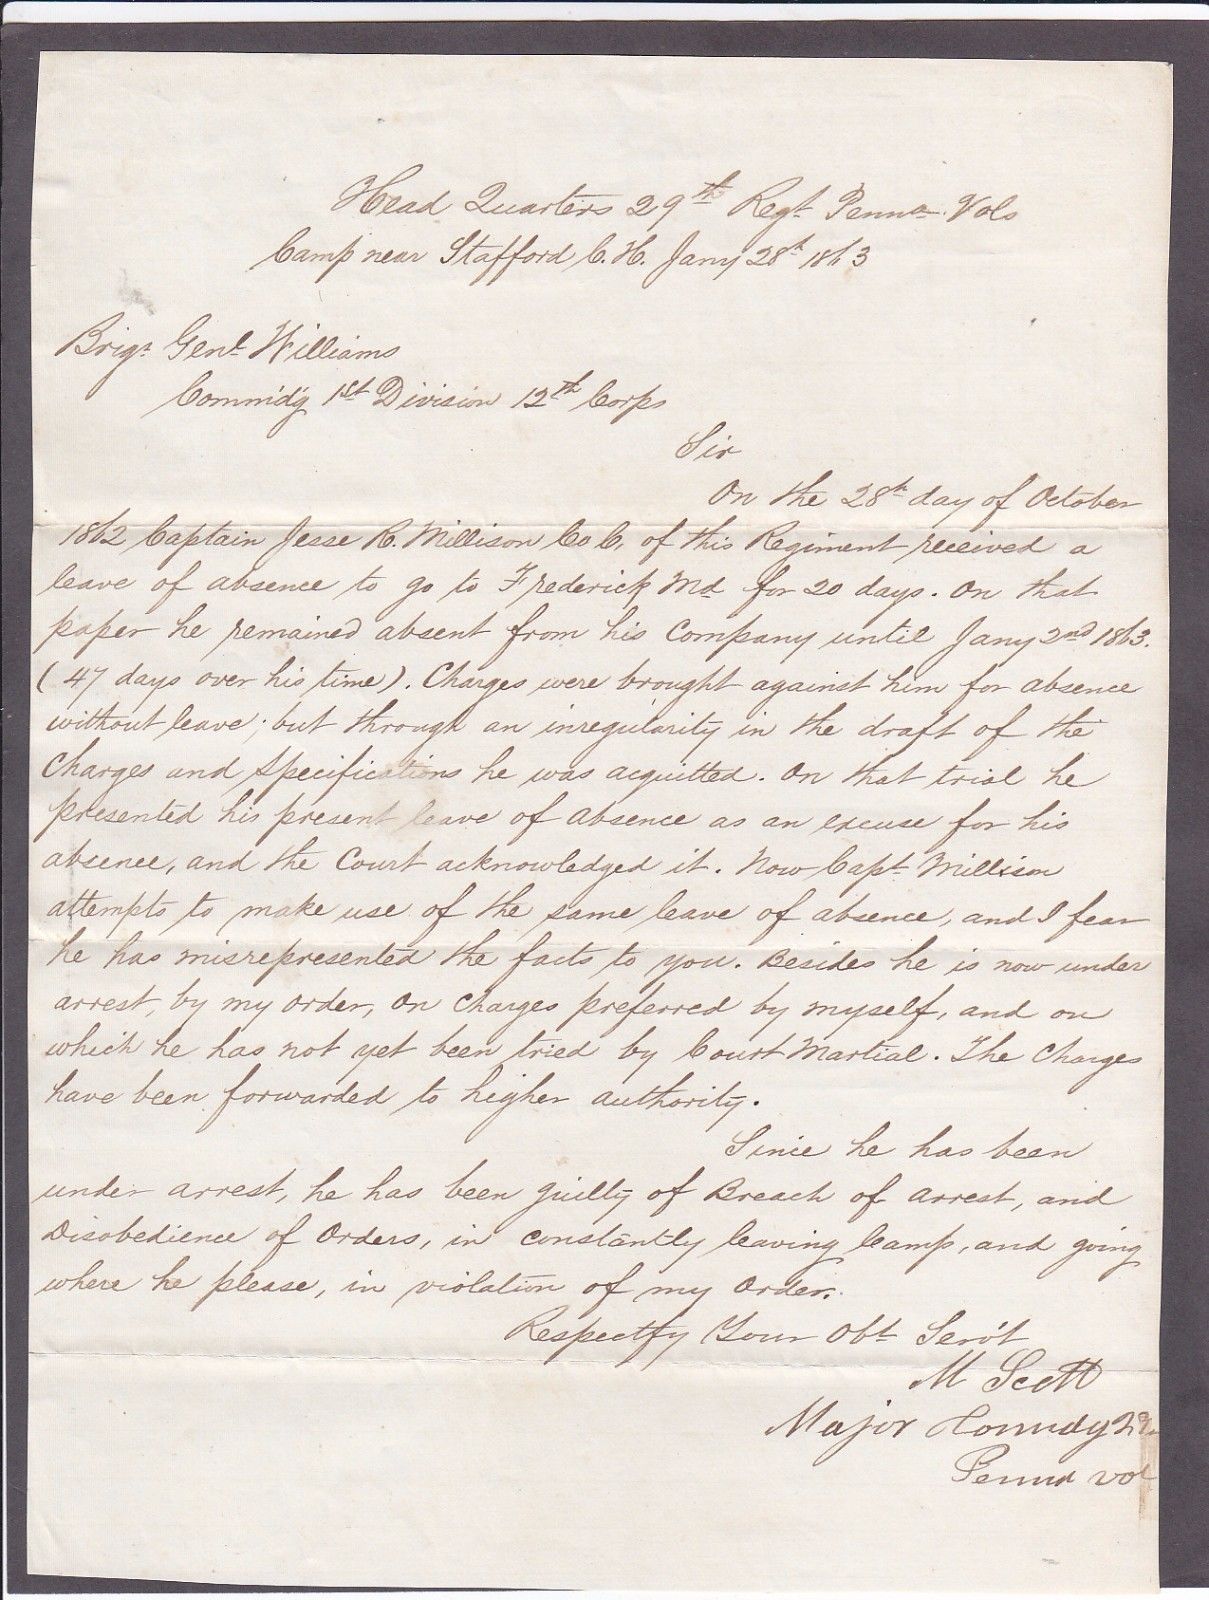 Head Quarters 29th Regt Penna. Vols
Camp near Stafford C. H. Jany 28th 1863
Brigr Genl Williams
Commd'g 1st Division 12th Corps
Sir
On the 28th day of October
1862 Captain Jesse R. Millison Co C, of this Regiment received a
leave of absence to go to Frederick Md for 20 days. On that
paper he remained absent from his Company until Jany 2nd 1863.
(47 days over his time). Charges were brought against him for absence
without leave; but through an inregularity in the draft of the
Charges and Specifications he was acquitted. On that trial he
presented his present leave of absence as an excuse for his
absence, and the Court acknowledged it. Now Capt Millison
attempts to make use of the same leave of absence, and I fear
he has misrepresented the facts to you. Besides he is now under
arrest, by my order, on charges preferred by myself, and on
which he has not yet been tried by Court Martial. The Charges
have been forwarded to higher authority.
Since he has been
under arrest, he has been guilty of Breach of arrest, and
Disobedience of Orders, in constantly leaving Camp, and going
where he please, in violation of my Order.
Respectfy Your Obt Servt
M Scott
Major Commdy 29
Penna vol